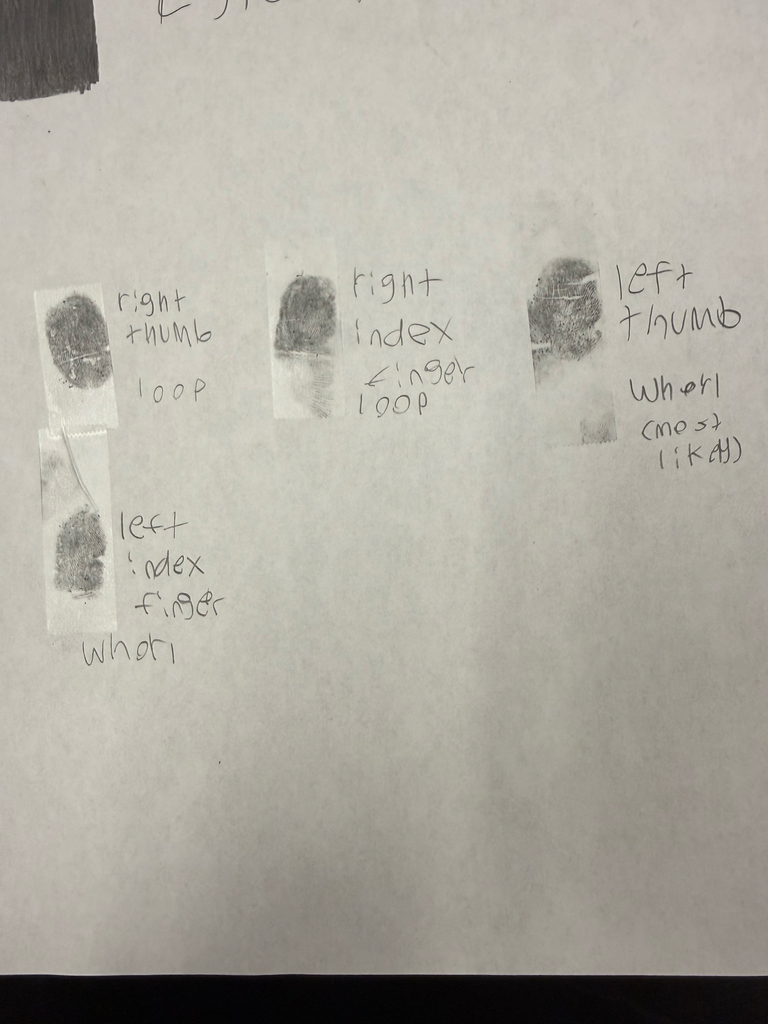 right
thumb
loop
right
index
finger
loop
left
thumb
Whorl
(most
likely)
left
index
finger
whorl